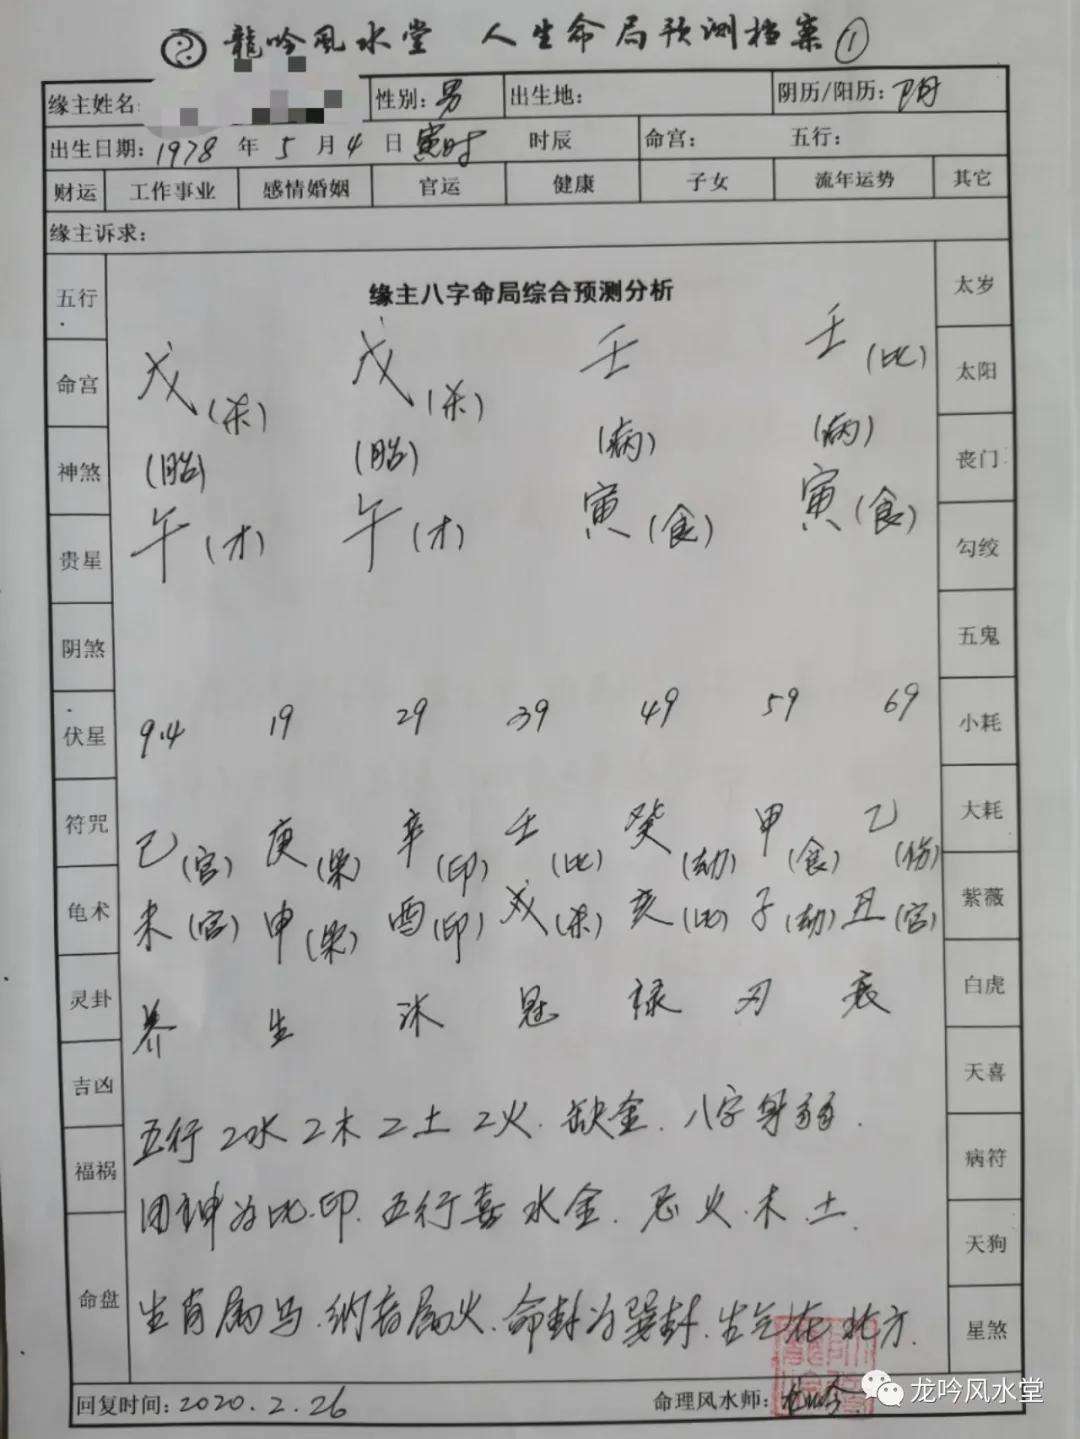 龍吟風水堂 人生命局预测档案①
缘主姓名: 性别: 男 出生地: 阴历/阳历: 阴
出生日期: 1978 年 5 月 4 日 寅时 时辰 命宫: 五行:
财运 工作事业 感情婚姻 官运 健康 子女 流年运势 其它
缘主诉求:
缘主八字命局综合预测分析
五行
命宫
神煞
贵星
阴煞
伏星
符咒
龟术
灵卦
吉凶
福祸
命盘
戊(杀) 戊(杀) 壬 壬(比)
(胎) (胎) (病) (病)
午(才) 午(才) 寅(食) 寅(食)
9.4 19 29 39 49 59 69
己(官) 庚(枭) 辛(印) 壬(比) 癸(劫) 甲(食) 乙(伤)
未(官) 申(枭) 酉(印) 戌(杀) 亥(比) 子(劫) 丑(官)
养 生 沐 冠 禄 刃 衰
五行 2水 2木 2土 2火. 缺金. 八字身弱.
用神为比.印. 五行喜水金. 忌火.木.土.
生肖属马.纳音属火.命卦为巽卦.生气在北方.
太岁
太阳
丧门
勾绞
五鬼
小耗
大耗
紫薇
白虎
天喜
病符
天狗
星煞
回复时间: 2020.2.26 命理风水师:
龙吟风水堂